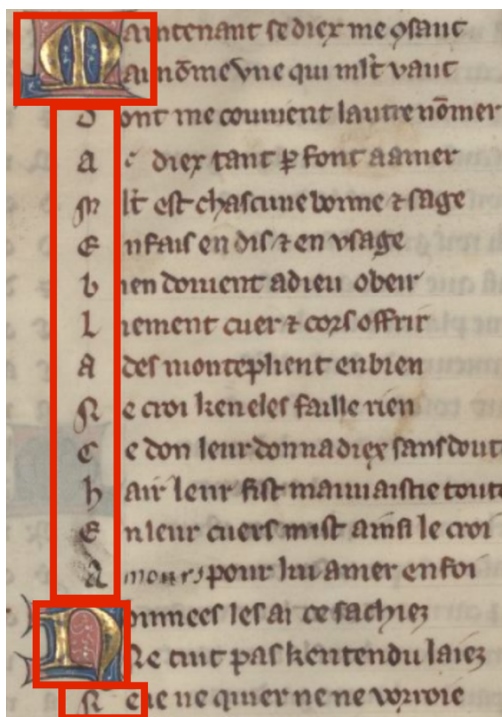 Maintenant se diex me ꝯsaut
ai nõme vne qui ml̃t vaut
Dont me couuient lautre nõmer
A diex tant ꝑ font a amer
Ml̃t est chascune bonne ⁊ sage
En fais en dis ⁊ en vsage
bien doiuent a dieu obeir
Liement cuer ⁊ cors offrir
Ades monteplient en bien
Ne croi ken eles faille rien
Ce don leur donna diex sans dout
hair leur fist mauuaistie toute
En leur cuers mist ainsi le croi
Amours pour lui amer en foi
Donnees les ai ce sachiez
Ne cuit pas kentendu laiez
ne quier ne ne vorroie